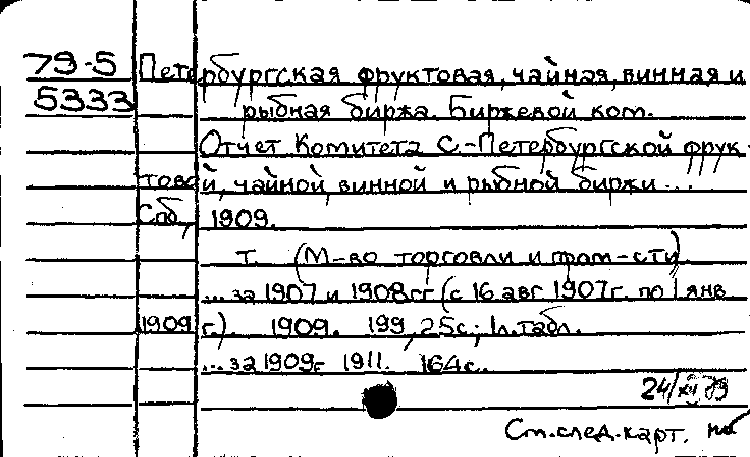 79-5 Петербургская фруктовая, чайная, винная и
5333 рыбная биржа. Биржевой ком.
Отчет Комитета С.-Петербургской фрук-
товой, чайной, винной и рыбной биржи...
Спб, 1909.
т. (М-во торговли и пром-сти)
...за 1907 и 1908гг (с 16 авг 1907г. по 1 янв
1909 г). 1909. 199, 25с; 1л.табл.
...за 1909г 1911. 164с.
24/XII 79
См.след.карт.